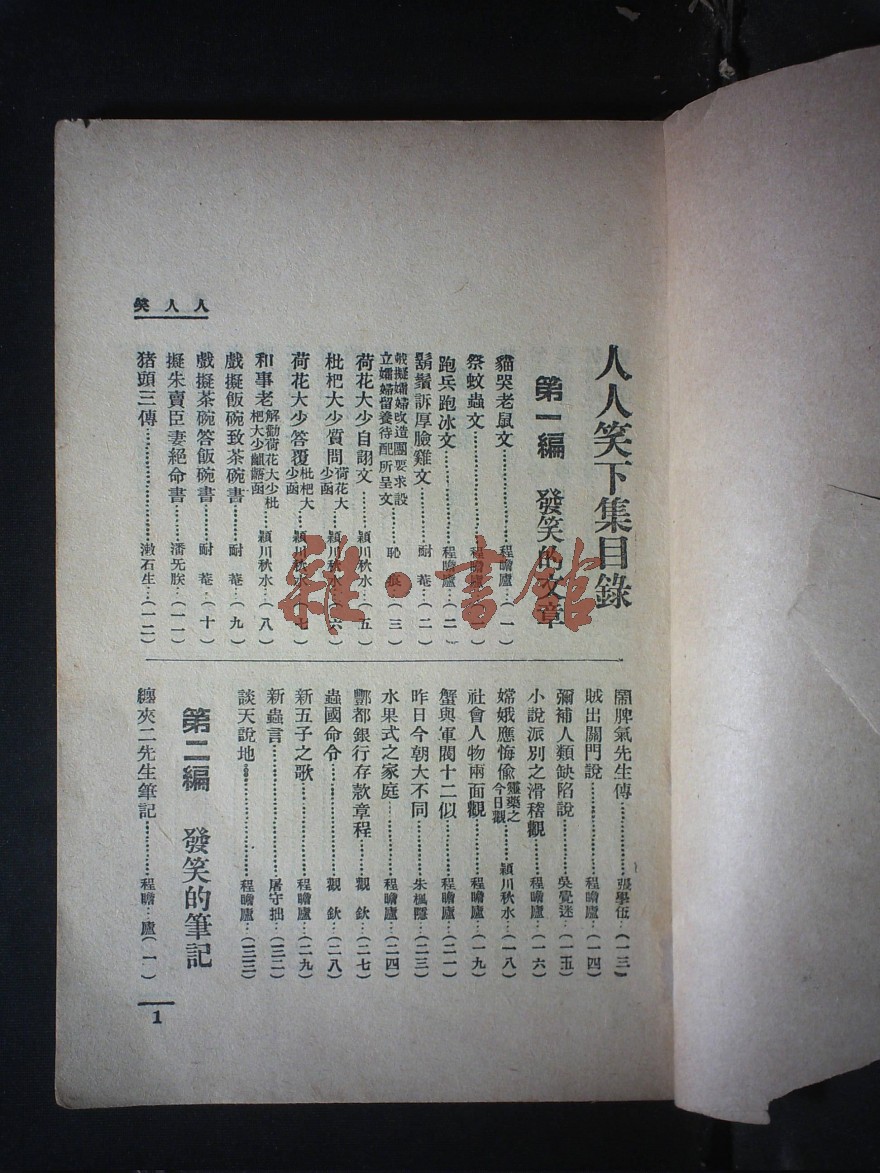 人人笑
人人笑下集目錄
第一編 發笑的文章
貓哭老鼠文……程瞻廬…(一)
祭蚊蟲文……程瞻廬…(一)
跑兵跑冰文……程瞻廬…(二)
鬍鬚訴厚臉雞文……耐菴…(二)
戲擬孀婦改造團要求設立孀婦留養待配所呈文…恥痕…(三)
荷花大少自詡文……潁川秋水…(五)
枇杷大少質問荷花大少函…潁川秋水…(六)
荷花大少答覆枇杷大少函…潁川秋水…(七)
和事老解勸荷花大少枇杷大少齟齬函 潁川秋水…(八)
戲擬飯碗致茶碗書……耐菴…(九)
戲擬茶碗答飯碗書……耐菴…(十)
擬朱賣臣妻絕命書……潘旡朕…(一一)
猪頭三傳……漱石生…(一二)
闇脾氣先生傳……張學伍…(一三)
賊出關門說……程瞻廬…(一四)
彌補人類缺陷說……吳覺迷…(一五)
小說派別之滑稽觀……程瞻廬…(一六)
嫦娥應悔偷靈藥之今日觀…潁川秋水…(一八)
社會人物兩面觀……程瞻廬…(一九)
蟹與軍閥十二似……程瞻廬…(二一)
昨日今朝大不同……朱楓隱…(二三)
水果式之家庭……程瞻廬…(二四)
酆都銀行存款章程……觀欽…(二七)
蟲國命令……觀欽…(二八)
新五子之歌……程瞻廬…(二九)
新蟲言……屠守拙…(三二)
談天說地……程瞻廬…(三三)
第二編 發笑的筆記
纏夾二先生筆記……程瞻廬(一)
1
雜·書館